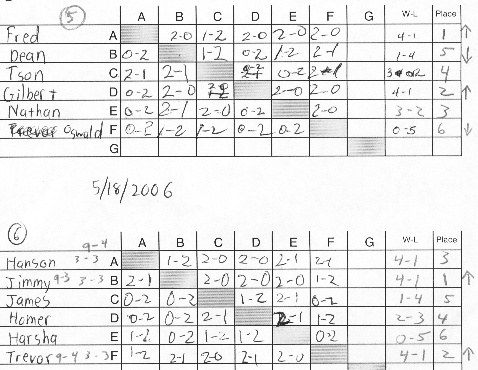 5
A B C D E F G W-L Place
Fred A 2-0 1-2 2-0 2-0 2-0 4-1 1 ↑
Dean B 0-2 1-2 0-2 1-2 2-1 1-4 5 ↓
Tson C 2-1 2-1 0-2 4
Gilbert D 0-2 2-0 2-0 2-0 4-1 2 ↑
Nathan E 0-2 2-1 2-0 0-2 2-0 3-2 3
Oswald F 0-2 1-2 1-2 0-2 0-2 0-5 6 ↓
G
5/18/2006
6
9-4
A B C D E F G W-L Place
Hanson 3-3 A 1-2 2-0 2-0 2-1 2-1 4-1 3
Jimmy 9-3 3-3 B 2-1 2-0 2-0 2-0 1-2 4-1 1 ↑
James C 0-2 0-2 1-2 2-1 0-2 1-4 5
Homer D 0-2 0-2 2-1 2-1 1-2 2-3 4
Harsha E 1-2 0-2 1-2 1-2 0-2 0-5 6
Trevor 9-4 3-3 F 1-2 2-1 2-0 2-1 2-0 4-1 2 ↑